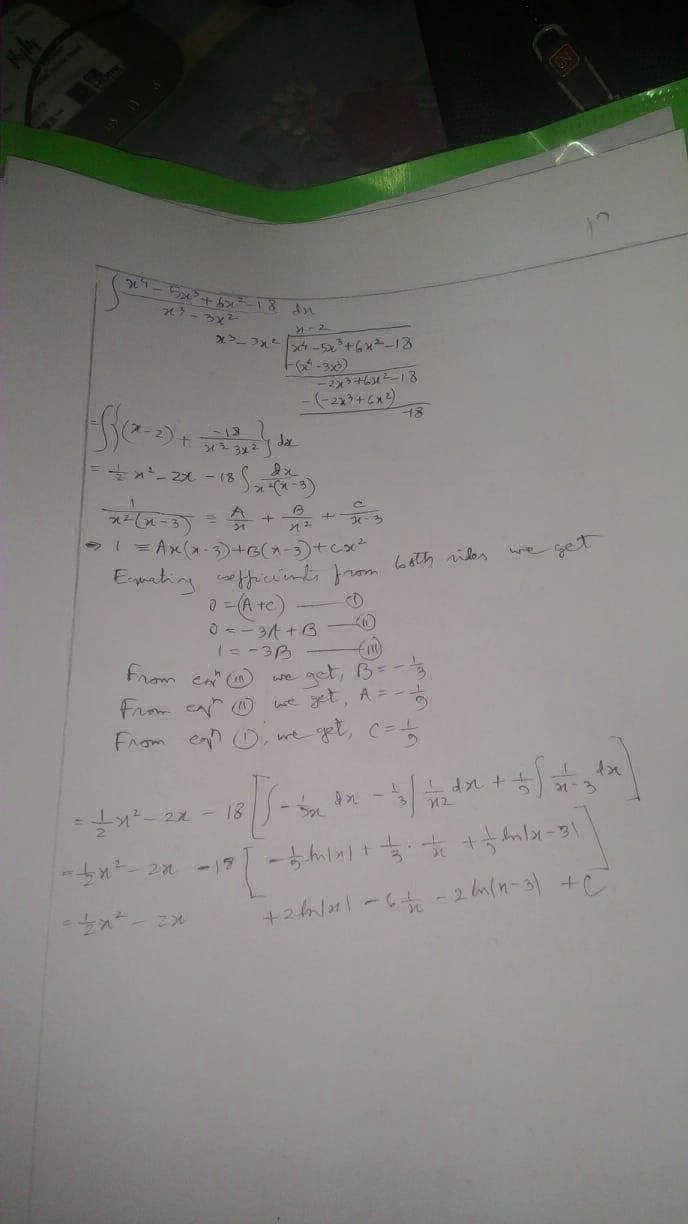 ∫ (x⁴ - 5x³ + 6x² - 18)/(x³ - 3x²) dx
x - 2
x³ - 3x² | x⁴ - 5x³ + 6x² - 18
-(x⁴ - 3x³)
-2x³ + 6x² - 18
-(-2x³ + 6x²)
-18
= ∫{(x-2) + (-18)/(x³ - 3x²)} dx
= 1/2 x² - 2x - 18 ∫ dx/(x²(x-3))
1/(x²(x-3)) = A/x + B/x² + C/(x-3)
⇒ 1 = Ax(x-3) + B(x-3) + Cx²
Equating coefficients from both sides we get
0 = (A+C) —— (I)
0 = -3A + B —— (II)
1 = -3B —— (III)
From eqⁿ (III) we get, B = -1/3
From eqⁿ (II) we get, A = -1/9
From eqⁿ (I), we get, C = 1/9
= 1/2 x² - 2x - 18 [∫ -1/9x dx - 1/3 ∫ 1/x2 dx + 1/9 ∫ 1/(x-3) dx]
= 1/2 x² - 2x - 18 [-1/9 ln|x| + 1/3 · 1/x + 1/9 ln|x-3|]
= 1/2 x² - 2x + 2 ln|x| - 6 1/x - 2 ln(x-3) + C